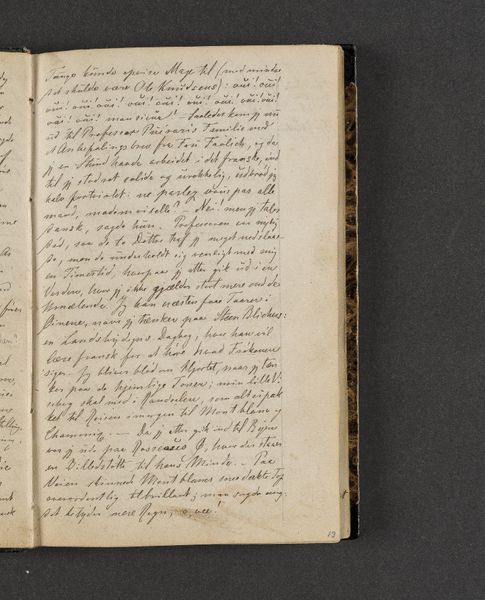 Tunge kunde Mage til (med mindre
det skulde være Ole Knudsens): oui! oui!
oui! oui! oui! oui! oui! oui! oui! oui!
oui! oui! Saaledes kom jeg nu
ud til Professor Familie med
et Anbefalings brev fra Fru og da
jeg en Stund havde arbeidet i det franske, ind
til jeg studset solide og udbrød jeg
halv fortvivlet: ne parlez vous pas alle
mand, mademoiselle? – Nei! men jeg taler
dansk, sagde hun. Professoren var
de to Døttre meget
men de underholdt sig venligt med mig
en Timestid, hvorpaa jeg atter gik ud i en
Verden, hvor jeg ikke gjælder stort mere end de
Umælende. Jeg kan næsten faae Taarer i
Øinene, naar jeg tænker paa Steen Blichers:
en Landsbydegns Dagbog, hvor han vil
lære fransk for at høre hvad Frøkenen
siger. Jeg bliver blød om Hjertet, naar jeg tæn
ker paa de hjemlige Toner; min lille
skal med i Randselen, som alt er pak
ket til Reisen imorgen til Mont blanc og
Chamonix. — Da jeg atter gik ind til Byen
var jeg ude paa Rousseaus Ø, hvor der staaer
en Billedstøtte til hans Minde. – Paa
Veien skinnede Montblancs sneedækte Top
overordentlig brillant; man sagde mig
at det tyder Regn; o vee!
19